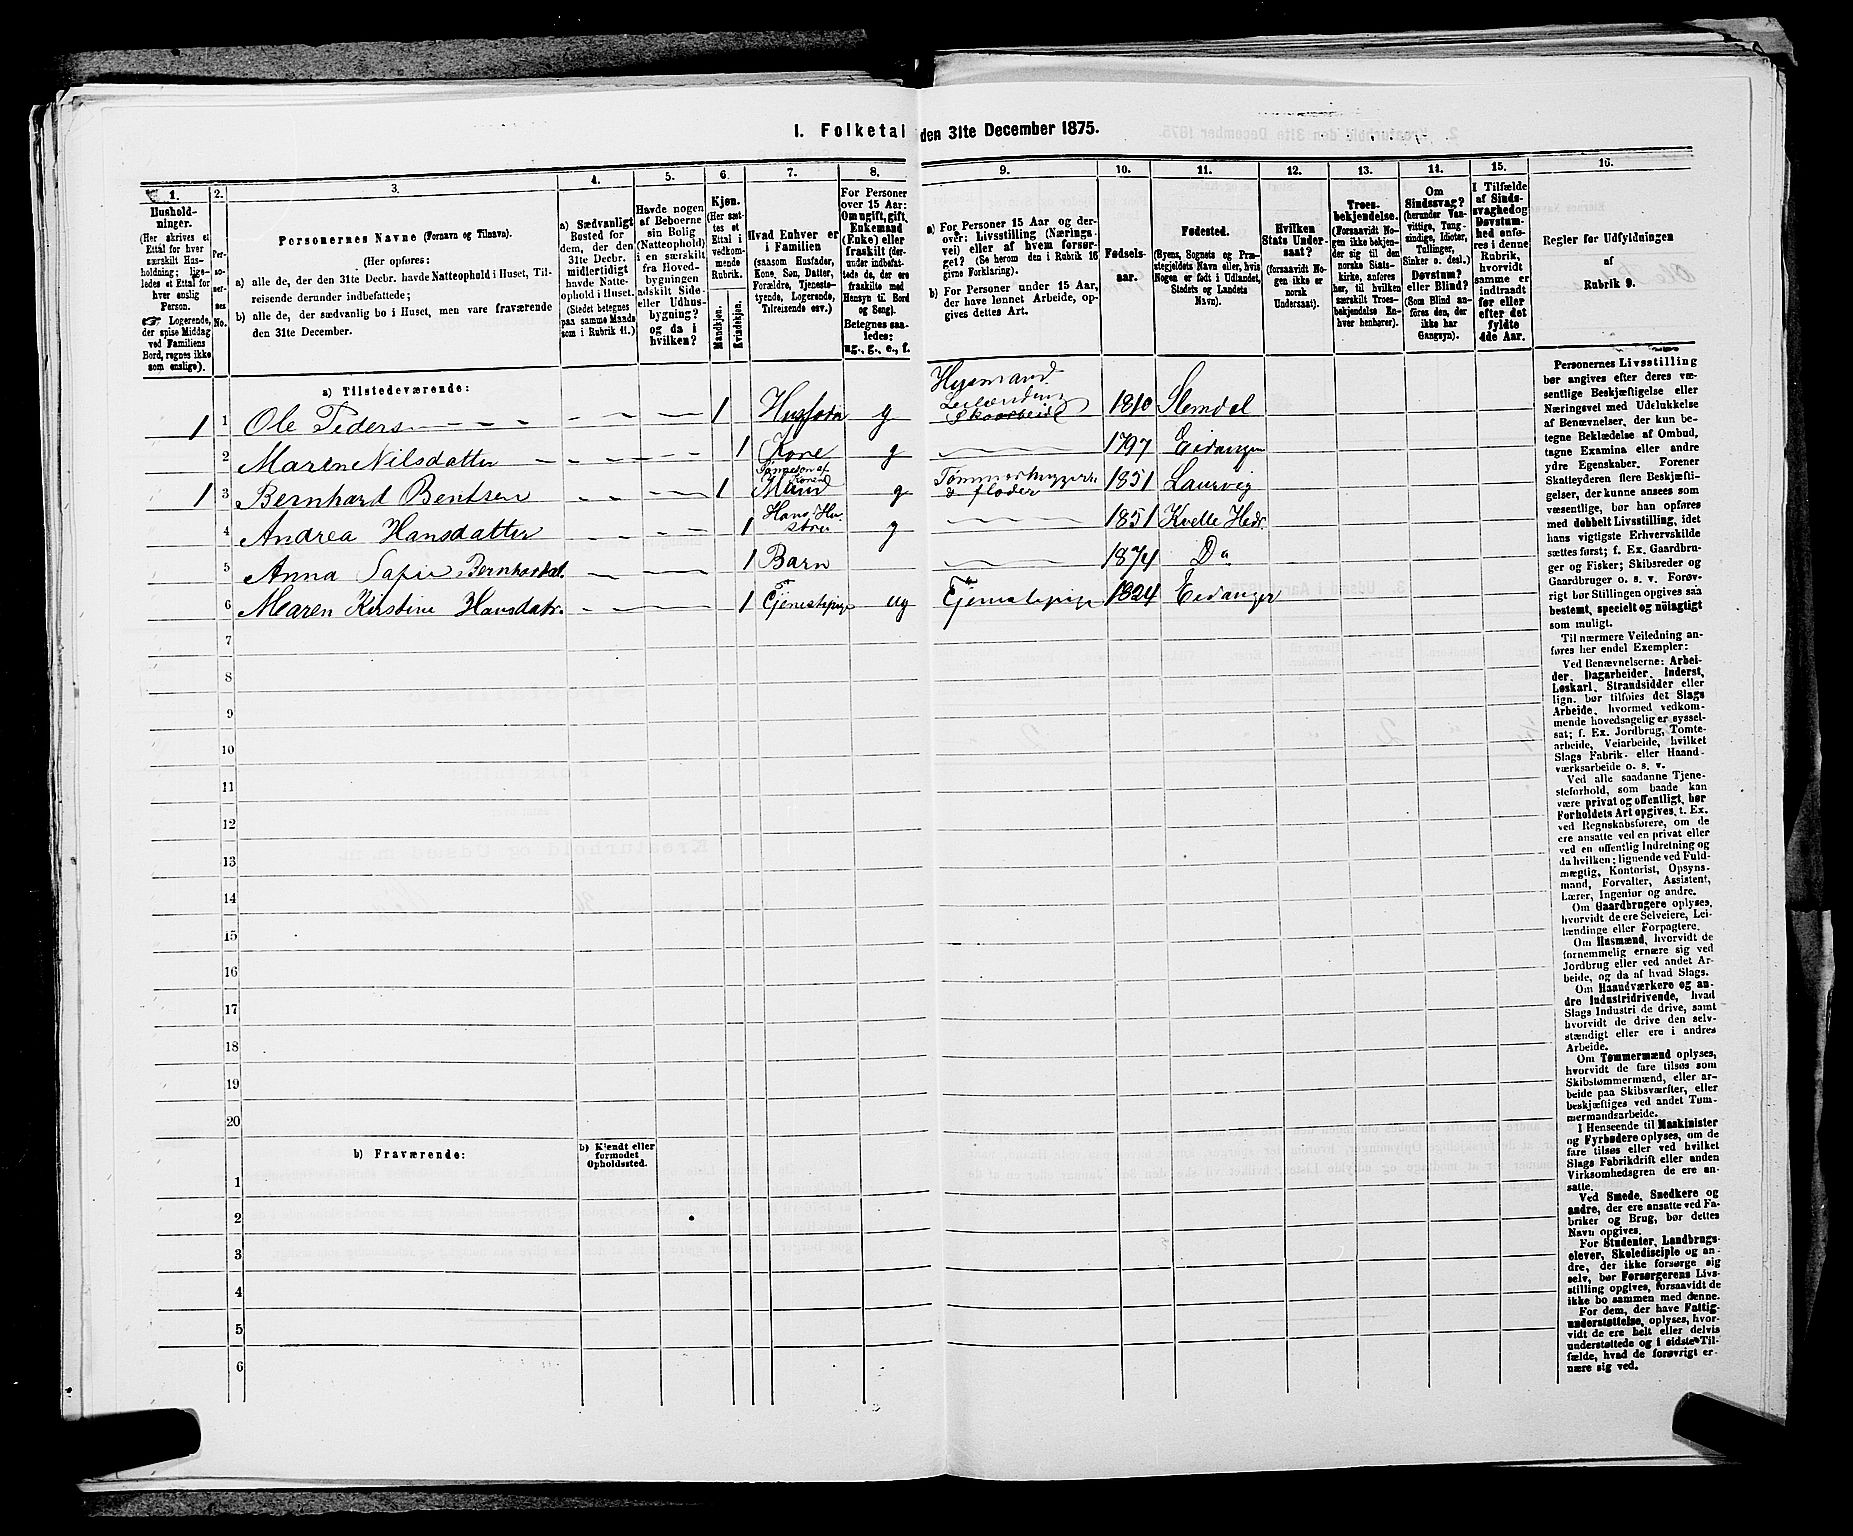 1. Folketal den 31te December 1875.
1.
Hushold-
ninger.
(Her skrives et
Ettal for hver
særskilt Hus-
holdning; lige-
ledes et Ettal for
hver enslig
Person.
☞ Logerende,
der spise Middag
ved Familiens
Bord, regnes ikke
som enslige).
2.
Per-
so-
ner-
nes
No.
3.
Personernes Navne (Fornavn og Tilnavn).
(Her opføres:
a) alle de, der den 31te Decbr. havde Natteophold i Huset, Til-
reisende derunder indbefattede;
b) alle de, der sædvanlig bo i Huset, men vare fraværende
den 31te December.
4.
a) Sædvanligt
Bosted for
dem, der den
31te Decbr.
midlertidigt
havde Natte-
ophold i Huset.
(Stedet betegnes
paa samme Maade
som i Rubrik 11.)
5.
Havde nogen
af Beboerne
sin Bolig
(Natteophold)
i en særskilt
fra Hoved-
bygningen
adskilt Side-
eller Udhus-
bygning?
og da i
hvilken?
6.
Kjøn.
(Her sæt-
tes et
Ettal i
vedkom-
mende
Rubrik.
Mandkjøn.
Kvindekjøn.
7.
Hvad Enhver er
i Familien
(saasom Husfader,
Kone, Søn, Datter,
Forældre, Tjeneste-
tyende, Logerende,
Tilreisende osv.)
8.
For Personer
over 15 Aar:
Om ugift, gift,
Enkemand
(Enke) eller
fraskilt (der-
under indbefat-
tede de, der ere
fraskilte med
Hensyn til Bord
og Seng).
Betegnes saa-
ledes:
ug., g., e., f.
9.
a) For Personer 15 Aar og der-
over: Livsstilling (Nærings-
vei) eller af hvem forsør-
get? (Se herom den i Rubrik 16
givne Forklaring).
b) For Personer under 15 Aar,
der have lønnet Arbeide, op-
gives dettes Art.
10.
Fødsels-
aar.
11.
Fødested.
(Byens, Sognets og Præ-
stegjeldets Navn eller, hvis
Nogen er født i Udlandet,
Stedets og Landets
Navn).
12.
Hvilken
Stats Under-
saat?
(forsaavidt No-
gen ikke er
norsk
Undersaat).
13.
Troes-
bekjendelse.
(Forsaavidt No-
gen ikke bekjen-
der sig til den
norske Stats-
kirke, anføres
her, til hvilken
særskilt Troes-
bekjendelse En-
hver henhører).
14.
Om
Sindssvag?
(herunder Van-
vittige, Tung-
sindige, Idioter,
Tullinger,
Sinker o. desl.)
Døvstum?
eller Blind?
(Som Blind an-
føres den, der
ikke har
Gangsyn).
15.
I Tilfælde
af Sinds-
svaghed og
Døvstum-
hed anfø-
res i denne
Rubrik,
hvorvidt
samme er
indtraadt
før eller
efter det
fyldte
4de Aar.
16.
Regler for Udfyldningen
af
Rubrik 9.
a) Tilstedeværende:
1 1 Ole Peders — — — — 1 Husfader g Husmand Leilænding Skoarbeide 1810 Slemdal
2 Maren Nilsdatter — — — 1 Kone g — 1797 Eidanger
1 3 Bernhard Bentsen — — 1 Mand g Tømmerhugger & fløder 1851 Laurvig
4 Andrea Hansdatter — — 1 Hans Hustru g — 1851 Kvelle Hedr.
5 Anna Sofie Bernhardsdat. — — 1 Barn 1874 Do
6 Maren Kirstine Hansdatr. — — 1 Tjenestepige ug Tjenestepige 1824 Eidanger
7
8
9
10
11
12
13
14
15
16
17
18
19
20
b) Fraværende:
b) Kjendt eller
formodet
Opholdssted.
1
2
3
4
5
6
Personernes Livsstilling
bør angives efter deres væ-
sentlige Beskjæftigelse eller
Næringsvei med Udelukkelse
af Benævnelser, der kun be-
tegne Beklædelse af Ombud,
tagne Examina eller andre
ydre Egenskaber. Forener
Skatteyderen flere Beskjæfti-
gelser, der kunne ansees som
væsentlige, bør han opføres
med dobbelt Livsstilling, idet
hans vigtigste Erhvervskilde
sættes først; f. Ex. Gaardbru-
ger og Fisker; Skibsreder og
Gaardbruger o. s. v. Forøv-
rigt bør Stillingen opgives saa
bestemt, specielt og nøiagtigt
som muligt.
Til nærmere Veiledning an-
føres her endel Exempler:
Ved Benævnelserne: Arbei-
der, Dagarbeider, Inderst,
Løskarl, Strandsidder eller
lign. bør tilføies det Slags
Arbeide, hvormed vedkom-
mende hovedsagelig er syssel-
sat; f. Ex. Jordbrug, Tomte-
arbeide, Veiarbeide, hvilket
Slags Fabrik- eller Haand-
værksarbeide o. s. v.
Ved alle saadanne Tjene-
steforhold, som baade kan
være privat og offentligt, bør
Forholdets Art opgives, t. Ex.
ved Regnskabsførere, om de
ere ansatte ved en privat eller
ved en offentlig Indretning og
da hvilken; lignende ved Fuld-
mægtig, Kontorist, Opsyns-
mand, Forvalter, Assistent,
Lærer, Ingeniør og andre.
Om Gaardbrugere oplyses,
hvorvidt de ere Selveiere, Lei-
lændinge eller Forpagtere.
Om Husmænd, hvorvidt de
fornemmelig ernære sig ved
Jordbrug eller ved andet Ar-
beide, og da af hvad Slags.
Om Haandværkere og an-
dre Industridrivende, hvad
Slags Industri de drive, samt
hvorvidt de drive den selv-
stændigt eller ere i andres
Arbeide.
Om Tømmermænd oplyses,
hvorvidt de fare tilsøs som
Skibstømmermænd, eller ar-
beide paa Skibsværfter, eller
beskjæftiges ved andet Tøm-
mermandsarbeide.
I Henseende til Maskinister
og Fyrbødere oplyses, om de
fare tilsøs eller ved hvilket
Slags Fabrikdrift eller anden
Virksomhedsgren de ere an-
satte.
Ved Smede, Snedkere og
andre, der ere ansatte ved Fa-
briker og Brug, bør dettes
Navn opgives.
For Studenter, Landbrugs-
elever, Skoledisciple og an-
dre, der ikke forsørge sig
selv, bør Forsørgerens Livs-
stilling opgives, forsaavidt de
ikke bo sammen med denne.
For dem, der have Fattig-
understøttelse, oplyses, hvor-
vidt de ere helt eller delvis
understøttede og i sidste Til-
fælde, hvad de forøvrigt er-
nære sig ved.